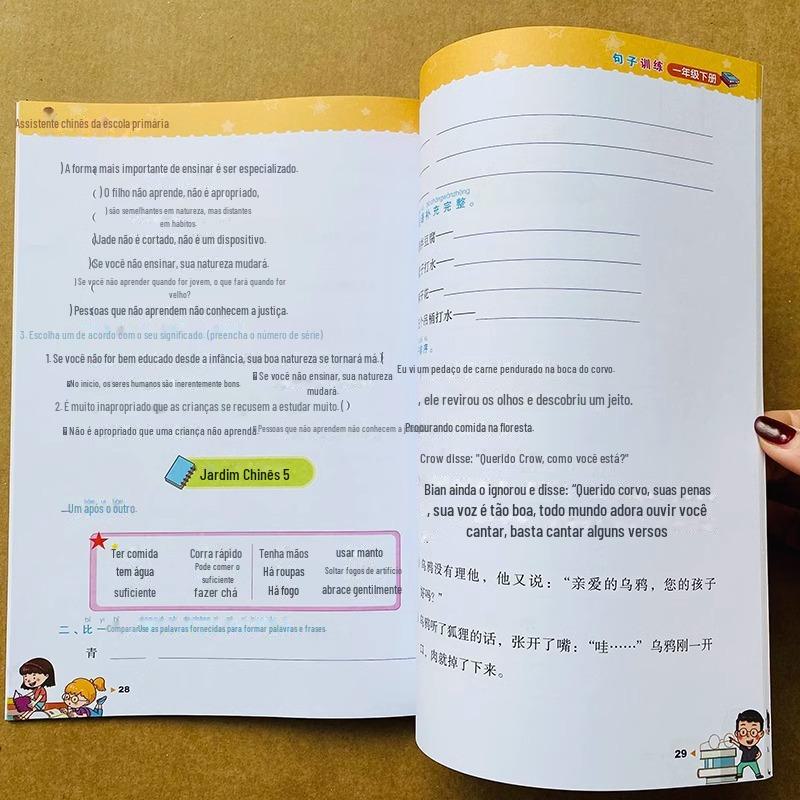 Assistente chinês da escola primária
) A forma mais importante de ensinar é ser especializado.
( ) O filho não aprende, não é apropriado,
( ) são semelhantes em natureza, mas distantes
em hábitos.
( Jade não é cortado, não é um dispositivo.
) Se você não ensinar, sua natureza mudará.
) Se você não aprender quando for jovem, o que fará quando for
velho?
) Pessoas que não aprendem não conhecem a justiça.
3. Escolha um de acordo com o seu significado. (preencha o número de série)
1. Se você não for bem educado desde a infância, sua boa natureza se tornará má. (
No início, os seres humanos são inerentemente bons.
Se você não ensinar, sua natureza
mudará.
2. É muito inapropriado que as crianças se recusem a estudar muito. ( )
Não é apropriado que uma criança não aprenda.
Pessoas que não aprendem não conhecem a
Jardim Chinês 5
Um após o outro.
Ter comida Corra rápido Tenha mãos usar manto
tem água Pode comer o suficiente Há roupas Soltar fogos de artifício
suficiente fazer chá Há fogo abrace gentilmente
二、比一 Comparar Use as palavras fornecidas para formar palavras e frases.
青
28
句子训练 一年级下册
补充完整。
豆腐——
打水——
开花——
桶打水——
序。
Eu vi um pedaço de carne pendurado na boca do corvo.
, ele revirou os olhos e descobriu um jeito.
Procurando comida na floresta.
Crow disse: "Querido Crow, como você está?"
Bian ainda o ignorou e disse: “Querido corvo, suas penas
, sua voz é tão boa, todo mundo adora ouvir você
cantar, basta cantar alguns versos
乌鸦没有理他，他又说：“亲爱的乌鸦，您的孩子
好吗？”
乌鸦听了狐狸的话，张开了嘴：“哇……”乌鸦刚一开
口，肉就掉了下来。
29